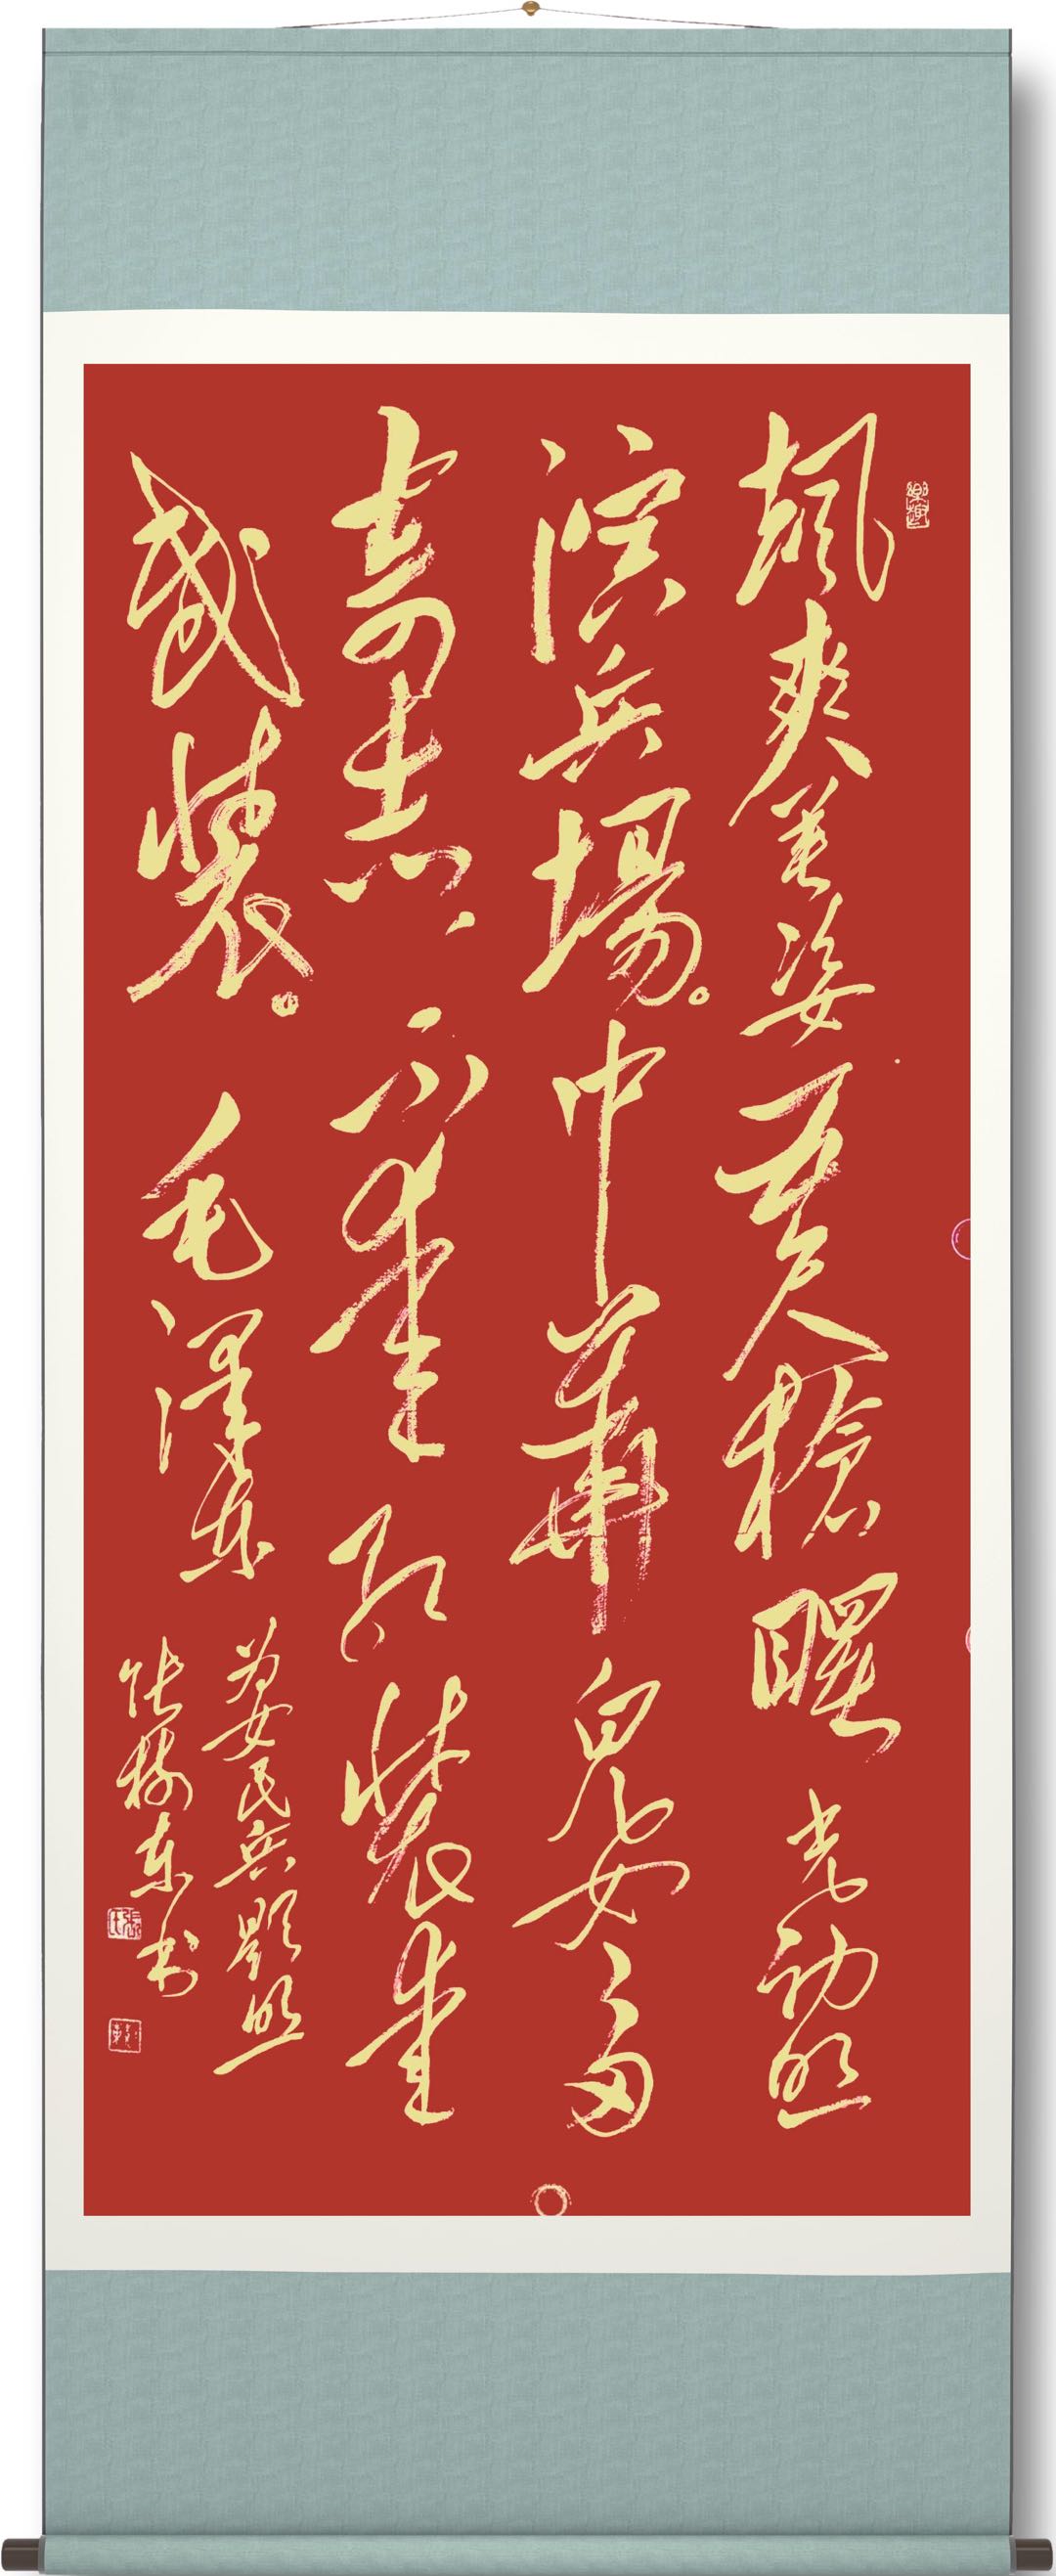 颯爽英姿五尺槍曙光初照
演兵場。中華兒女多
奇志不愛紅裝愛
武裝。毛澤東
為女民兵題照
張樹東书